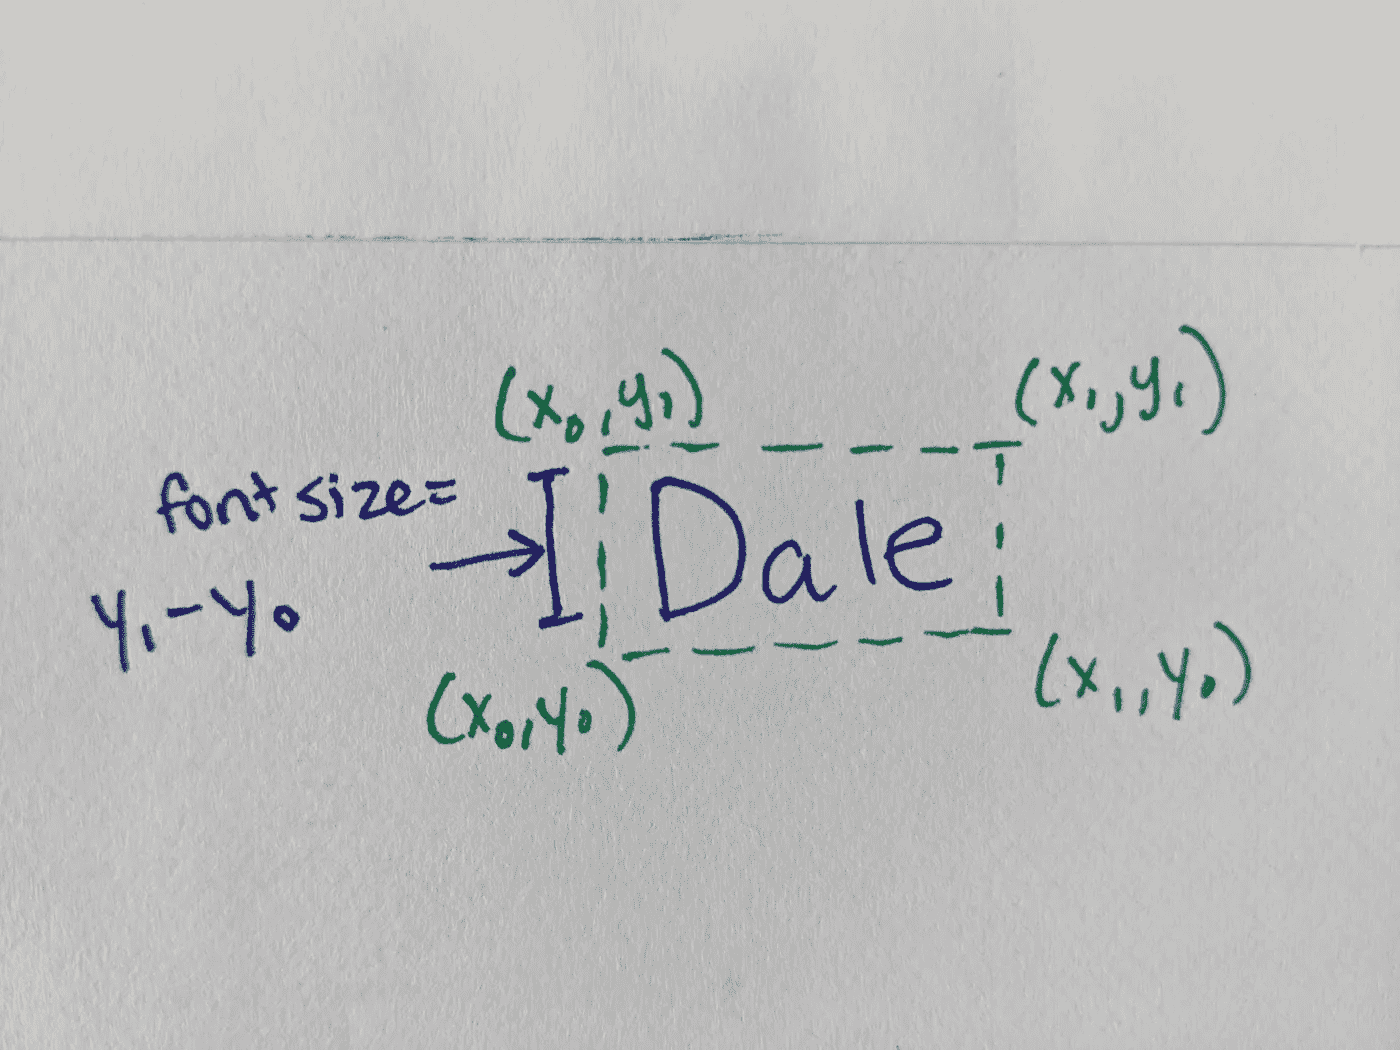 (x₀, y₁)
(x₁, y₁)
font size =
y₁ - y₀
Dale
(x₀, y₀)
(x₁, y₀)